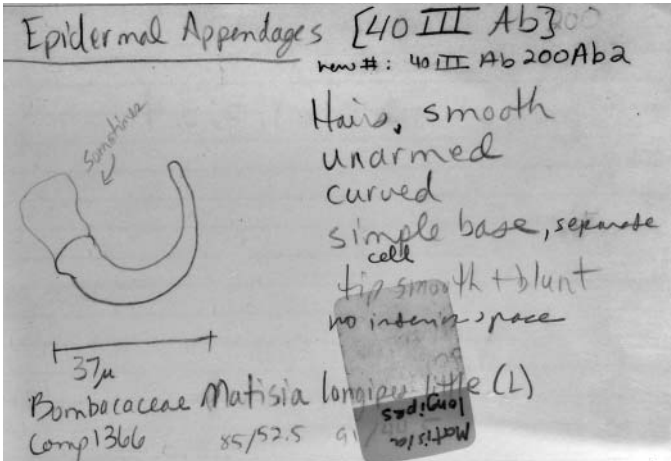 Epidermal Appendages [40 III Ab] 200
new #: 40 III Ab 200Ab2
Sometimes
Hairs, smooth
unarmed
curved
simple base, separate
cell
tip smooth + blunt
no interior space
37µ
Bombacaceae Matisia longipes Little (L)
Comp1366 85/52.5 91/
Matisia
longipes